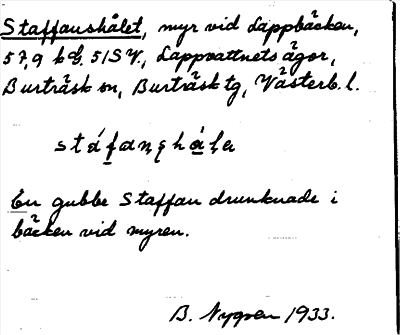 Staffanshålet, myr vid Lappbäcken,
57,9 kg. 51SV., Lappvattnets ägor,
Burträsk sn, Burträsk tg, Västerb. l.
En gubbe Staffan drunknade i
bäcken vid myren.
B. Nygren 1933.